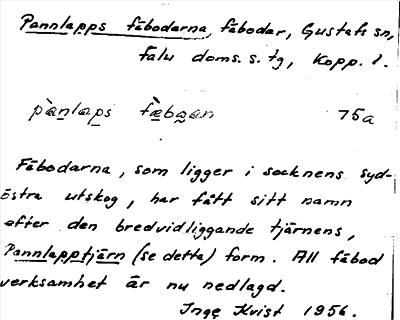 Pannlapps fäbodarna, fäbodar, Gustafs sn,
Falu doms. s. tg, Kopp. l.
pànlaps fæ̀bọạn 75a
Fäbodarna, som ligger i socknens syd-
östra utskog, har fått sitt namn
efter den bredvidliggande tjärnens,
Pannlapptjärn (se detta) form. All fäbod
verksamhet är nu nedlagd.
Inge Kvist 1956.